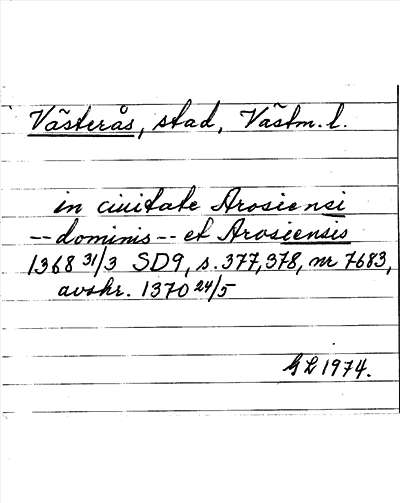 Västerås, stad, Västm. l.
in ciuitate Arosiensi
-- dominis -- et Arosiensis
1368 31/3 SD9, s. 377, 378, nr 7683,
avskr. 1370 24/5
GL 1974.